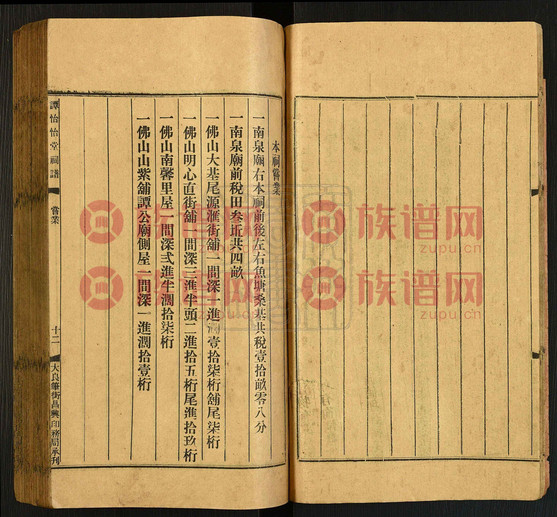 本祠嘗業
一南泉廟右本祠前後左右魚塘桑基共稅壹拾畝零八分
一南泉廟前稅田叁坵共四畝
一佛山大基尾源滙街舖一間深一進濶壹拾柒桁舖尾柒桁
一佛山明心直街舖一間深三進半頭二進拾五桁尾進拾玖桁
一佛山南馨里屋一間深弍進半濶拾柒桁
一佛山山紫舖譚公廟側屋一間深一進濶拾壹桁
譚怡怡堂祠譜
嘗業
十二
大良華街昌興印務局承刊
族谱网
zupu.cn
族谱网
zupu.cn
族谱网
zupu.cn
族谱网
zupu.cn